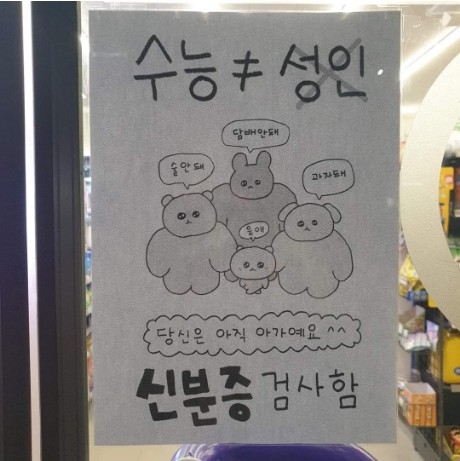 수능 ≠ 성인
담배안돼
술안돼
과자돼
응애
당신은 아직 아가예요^^
신분증 검사함